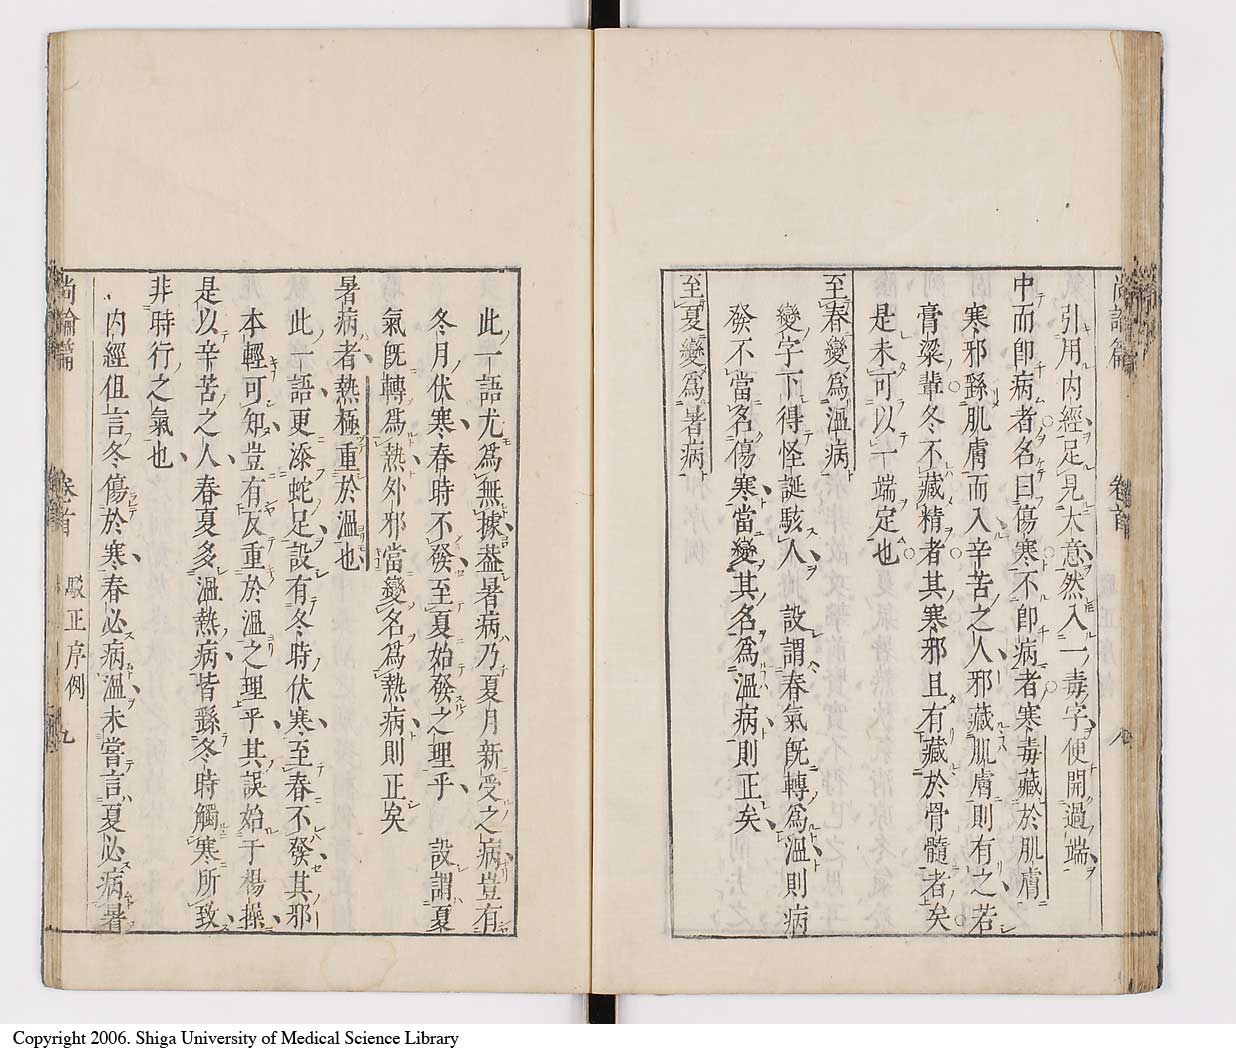 尚論篇 卷首 八
引用内經足見大意然入一毒字便開過端
中而卽病者名曰傷寒不卽病者寒毒藏於肌膚
寒邪繇肌膚而入辛苦之人邪藏肌膚則有之若
膏粱輩冬不藏精者其寒邪且有藏於骨髓者矣
是未可以一端定也
至春變爲溫病
變字下得怪誕駭人 設謂春氣旣轉爲溫則病
發不當名傷寒當變其名爲溫病則正矣
至夏變爲暑病
此一語尤爲無據葢暑病乃夏月新受之病豈有
冬月伏寒春時不發至夏始發之理乎 設謂夏
氣旣轉爲熱外邪當變名爲熱病則正矣
暑病者熱極重於溫也
此一語更添蛇足設有冬時伏寒至春不發其邪
本輕可知豈有反重於溫之理乎其誤始于楊操
是以辛苦之人春夏多溫熱病皆繇冬時觸寒所致
非時行之氣也
内經但言冬傷於寒春必病溫未嘗言夏必病暑
尚論篇 卷首 駁正序例 九
Copyright 2006. Shiga University of Medical Science Library